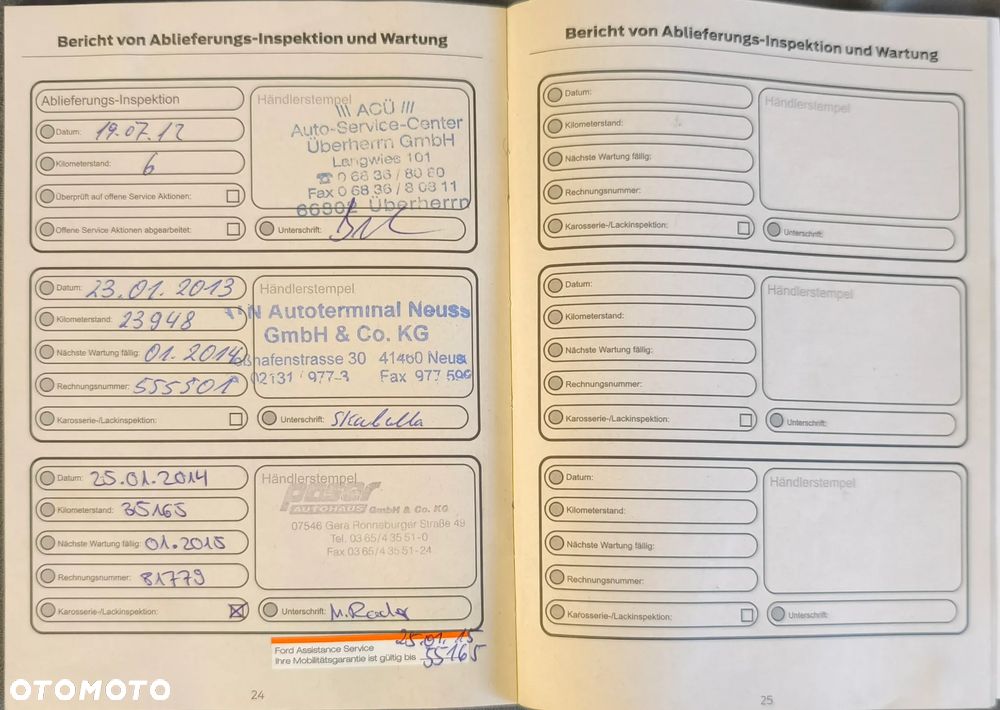 Bericht von Ablieferungs-Inspektion und Wartung
Ablieferungs-Inspektion
Datum: 19.07.12
Kilometerstand: 6
Überprüft auf offene Service Aktionen:
Offene Service Aktionen abgearbeitet:
Händlerstempel
\\\ ACÜ ///
Auto-Service-Center
Überherrn GmbH
Langwies 101
☎ 0 68 36 / 80 80
Fax 0 68 36 / 8 08 11
66802 Überherrn
Unterschrift:
Datum: 23.01.2013
Kilometerstand: 23948
Nächste Wartung fällig: 01.2014
Rechnungsnummer: 555501
Karosserie-/Lackinspektion:
Händlerstempel
Autoterminal Neuss
GmbH & Co. KG
hafenstrasse 30 41460 Neuss
02131 / 977-3 Fax 977 599
Unterschrift:
Datum: 25.01.2014
Kilometerstand: 35165
Nächste Wartung fällig: 01.2015
Rechnungsnummer: 81779
Karosserie-/Lackinspektion:
Händlerstempel
poser
AUTOHAUS GmbH & Co. KG
07546 Gera Ronneburger Straße 49
Tel. 03 65/4 35 51-0
Fax 03 65/4 35 51-24
Unterschrift: M. Rader
Ford Assistance Service 25.01.15
Ihre Mobilitätsgarantie ist gültig bis 55165
24
Bericht von Ablieferungs-Inspektion und Wartung
Datum:
Kilometerstand:
Nächste Wartung fällig:
Rechnungsnummer:
Karosserie-/Lackinspektion:
Händlerstempel
Unterschrift:
Datum:
Kilometerstand:
Nächste Wartung fällig:
Rechnungsnummer:
Karosserie-/Lackinspektion:
Händlerstempel
Unterschrift:
Datum:
Kilometerstand:
Nächste Wartung fällig:
Rechnungsnummer:
Karosserie-/Lackinspektion:
Händlerstempel
Unterschrift:
25
OTOMOTO